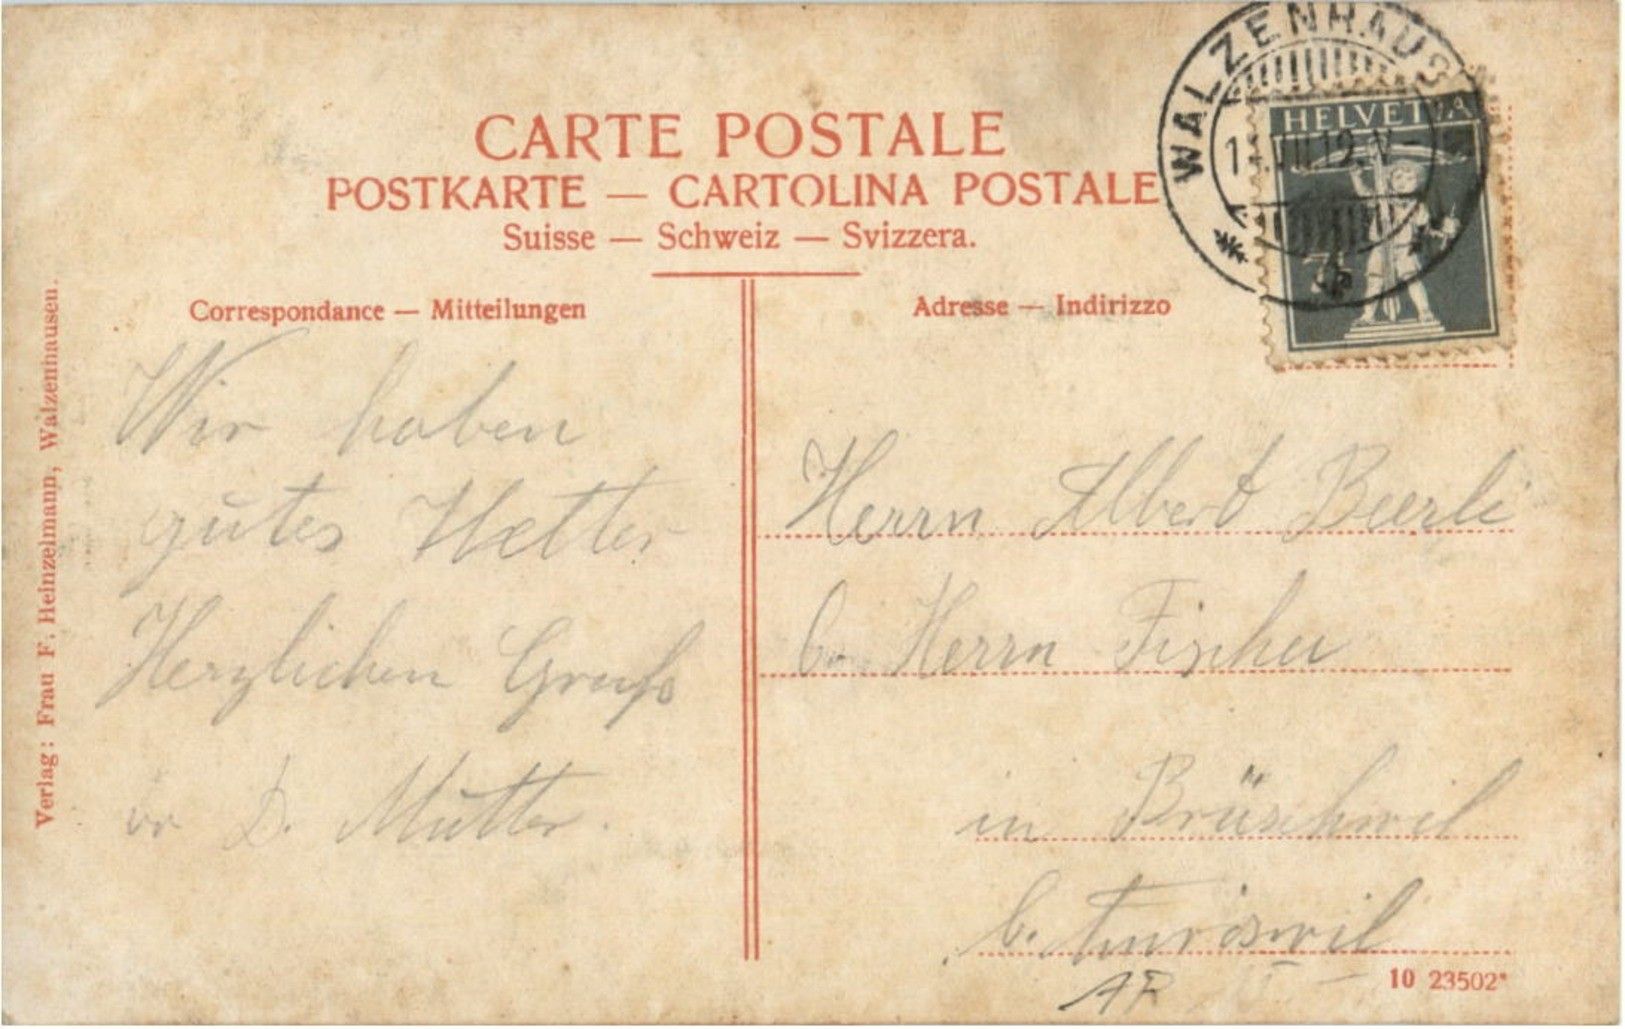 CARTE POSTALE
POSTKARTE — CARTOLINA POSTALE
Suisse — Schweiz — Svizzera.
Correspondance — Mitteilungen
Adresse — Indirizzo
WALZENHAUS
HELVETIA
Wir haben
gutes Wetter
Herzlichen Gruss
D. Mutter.
Herrn Albert Beerli
b. Herrn Fischer
in Brüschwil
b.
AR
10 23502*
Verlag: Frau F. Heinzelmann, Walzenhausen.